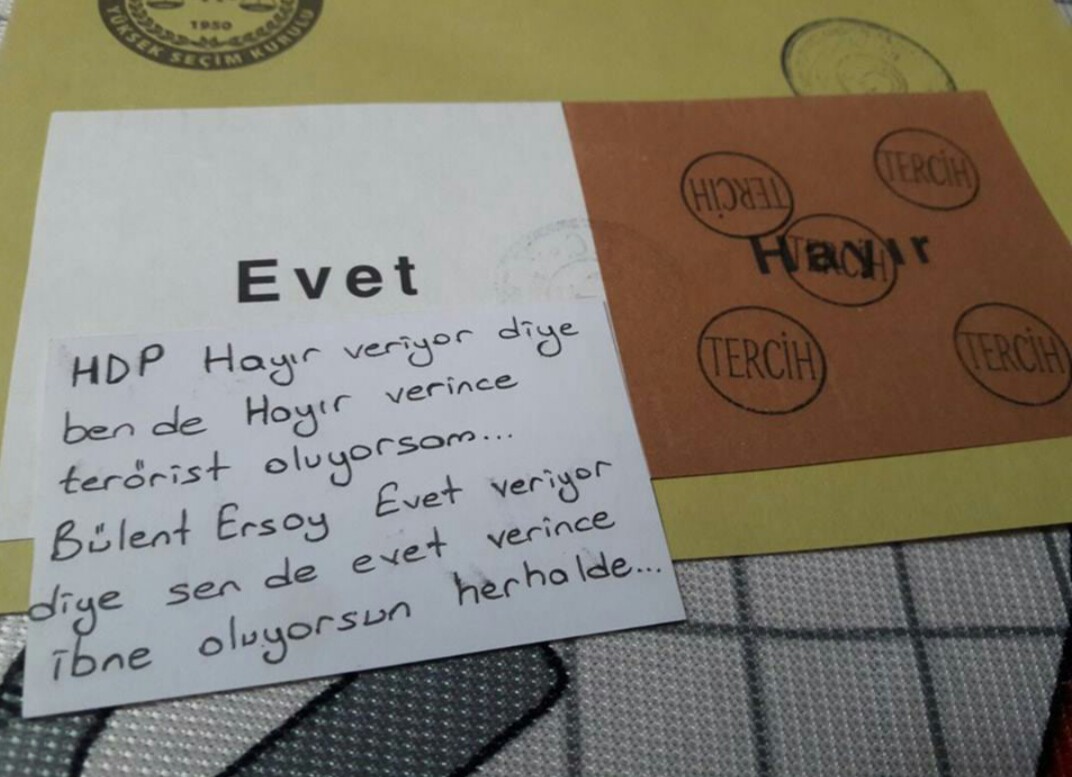 1950
YÜKSEK SEÇİM KURULU
Evet
Hayır
TERCİH
TERCİH
TERCİH
TERCİH
TERCİH
HDP Hayır veriyor diye
ben de Hayır verince
terörist oluyorsam...
Bülent Ersoy Evet veriyor
diye sen de evet verince
ibne oluyorsun herhalde...